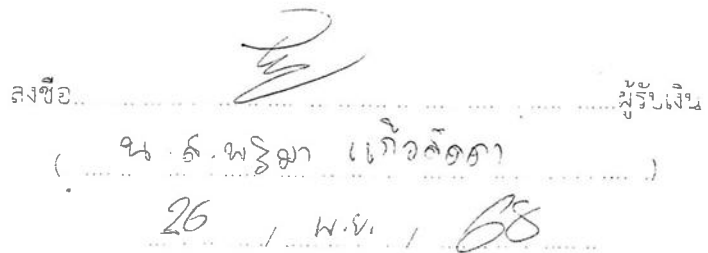 ลงชื่อ ผู้รับเงิน
( น.ส.พริมา แก้วลัดดา )
26 / พ.ย. / 68